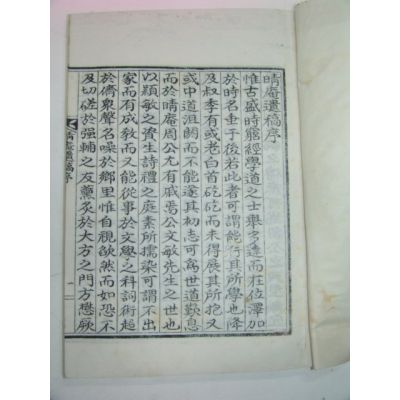 晴庵遺稿序
惟古盛時窮經學道之士舉多達而在位澤加
於時名垂于後若此者可謂能行其所學也降
及叔季有或老白首矻矻而未得展其所抱又
或中道沮閼而不能遂其初志可爲世道歎息
而於晴庵周公尤有慼焉公文敏先生之世也
以穎敏之資生詩禮之庭素所擩染可謂不出
家而有成敎而又能從事於文學之科詞術超
於儕衆聲名噪於鄕里惟自視欿然而如恐不
及切磋於强輔之友薰炙於大方之門方懋厥
晴庵遺稿序
一